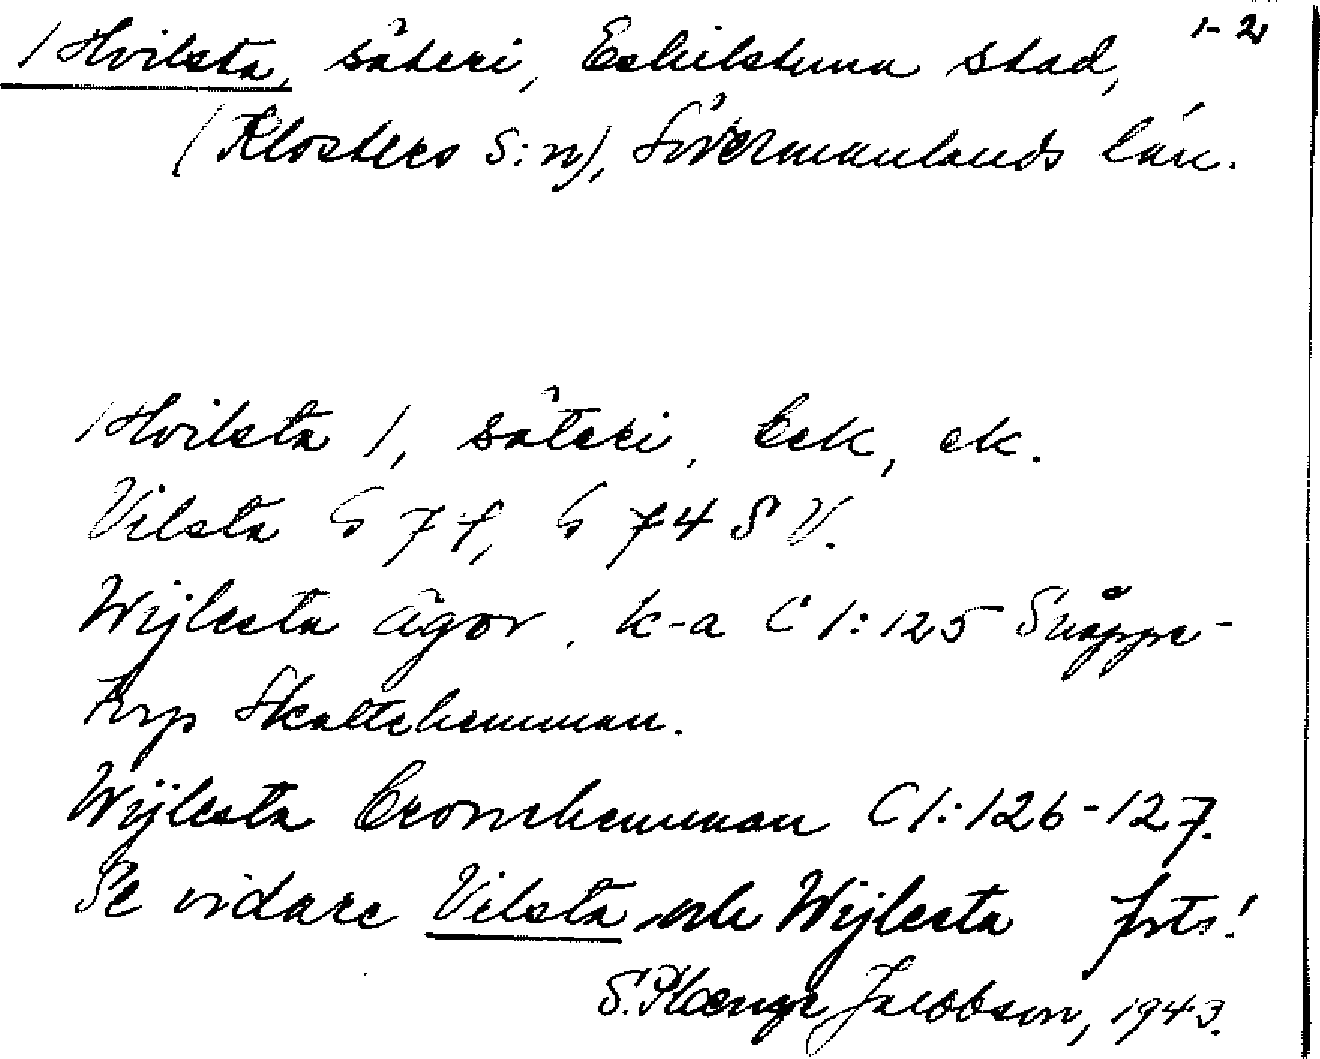 1-2
Hvilsta, säteri, Eskilstuna stad,
(Klosters S:n), Södermanlands län.
Hvilsta 1, säteri, Eek, ek.
Vilsta G 7f, G 74 SV.
Wijlesta ägor. k-a C 1:125 Snåppe-
torp Skattehemman.
Wijlesta Cronehemman C 1:126-127.
Se vidare Vilsta och Wijlesta forts!
S. Plænge Jacobson, 1943.